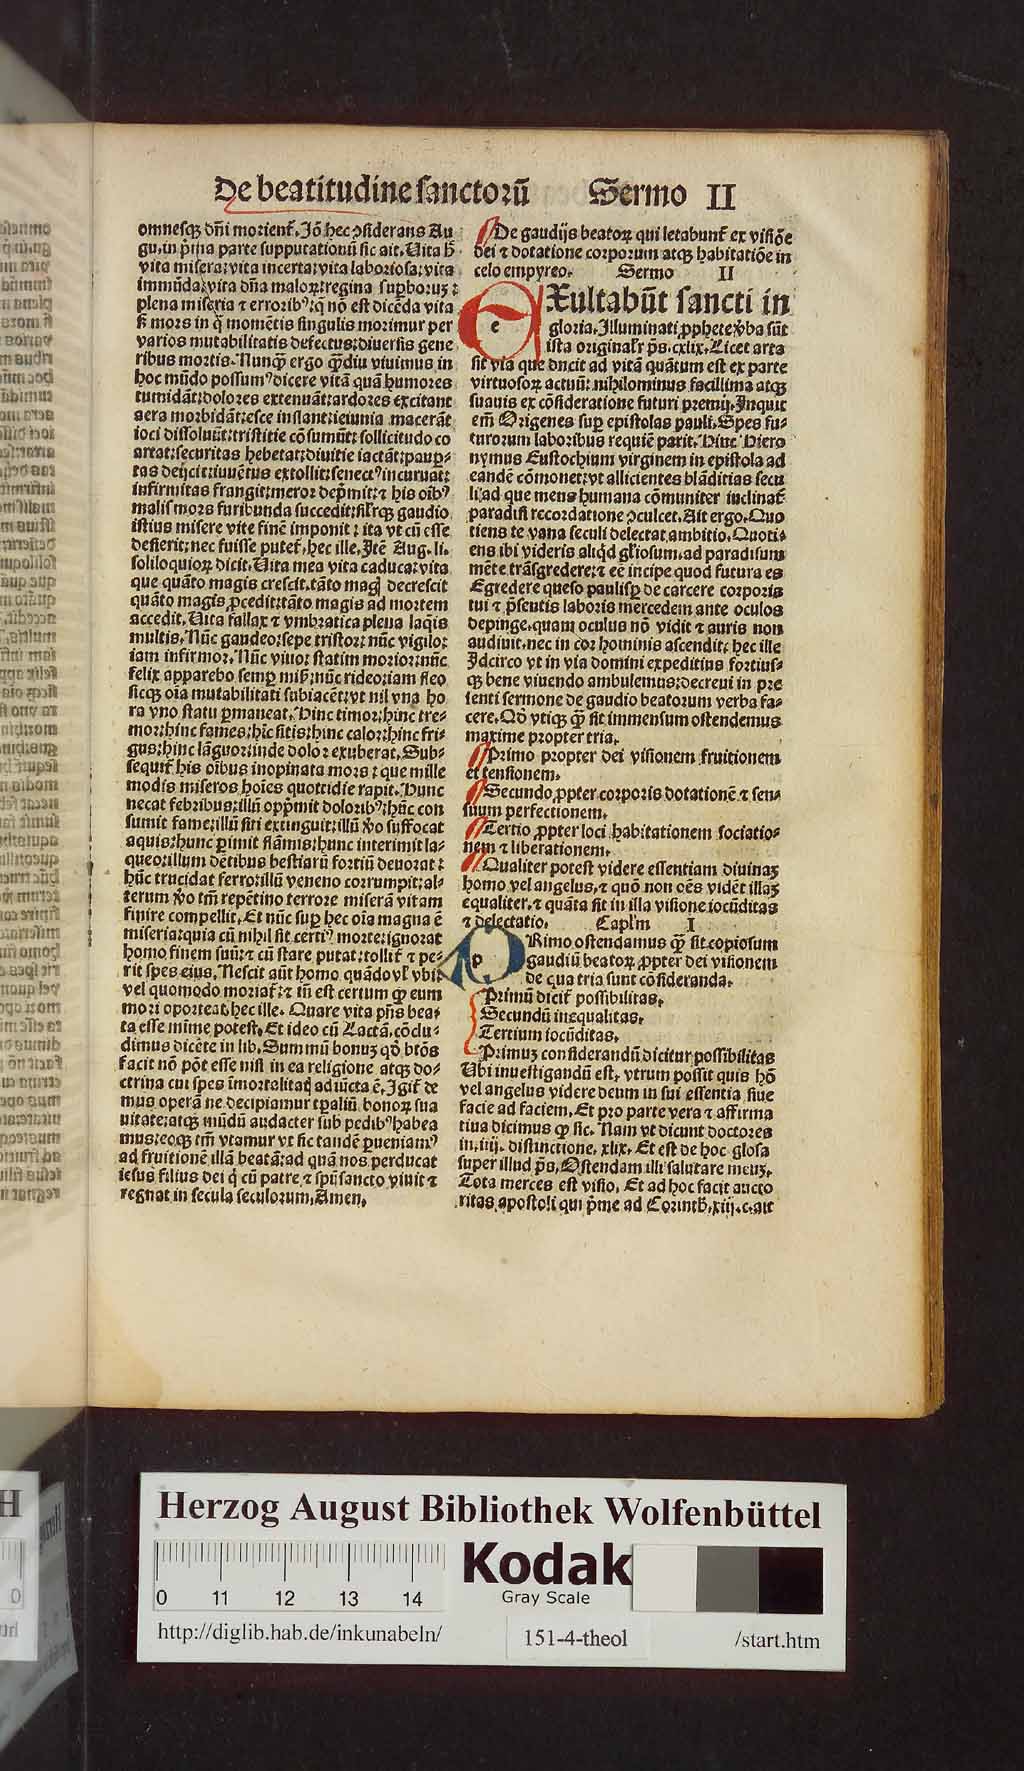 De beatitudine sanctorū Sermo II
omnesqꝫ dn̄i morient᷑. Iō hec ↄsiderans Au
gu. in p̄ma parte supputationū sic ait. Vita h̄
vita misera: vita incerta: vita laboriosa: vita
immūda: vita dn̄a maloꝝ: regina supboruꝫ:
plena miseria ⁊ errorib⁹: q̄ nō est dicēda vita
ꝭ mors in q̄ momētis singulis morimur per
varios mutabilitatis defectus: diuersis gene
ribus mortis. Nunqꝫ ergo qꝫdiu viuimus in
hoc mūdo possum⁹ dicere vitā quā humores
tumidāt: dolores extenuāt: ardores excitant
aera morbidāt: esce inflant: ieiunia macerāt
ioci dissoluūt: tristitie cōsumūt: sollicitudo co
artat: securitas hebetat: diuitie iactāt: pauꝑ-
tas deijcit: iuuētus extollit: senect⁹ incuruat:
infirmitas frangit: meror dep̄mit: ⁊ his oīb⁹
malis mors furibunda succedit: sil̄rqꝫ gaudio
istius misere vite finē imponit: ita vt cū esse
desierit: nec fuisse putet᷑. hec ille. Itē Aug. li.
soliloquioꝝ dicit. Vita mea vita caduca: vita
que quāto magis crescit. tāto magꝭ decrescit
quāto magis ꝓcedit: tāto magis ad mortem
accedit. Vita fallax ⁊ vmbratica plena laqis
multis. Nūc gaudeo: sepe tristor: nūc vigilo:
iam infirmor. Nūc viuo: statim morior: nūc
felix apparebo semꝑ mih̄: nūc rideo: iam fleo
sicqꝫ oīa mutabilitati subiacēt: vt nil vna ho
ra vno statu ꝑmaneat. Hinc timor: hinc tre-
mor: hinc fames: hīc sitis: hinc calor: hinc fri-
gus: hinc lāguor: inde dolor exuberat. Sub-
sequit᷑ his oībus inopinata mors: que mille
modis miseros hoīes quottidie rapit. Hunc
necat febribus: illū opp̄mit dolorib⁹: hūc con
sumit fame: illū siti extinguit: illū v̄o suffocat
aquis: hunc ꝑimit flāmis: hunc interimit la-
queo: illum dētibus bestiarū fortiū deuorat:
hūc trucidat ferro: illū veneno corrumpit: al-
terum v̄o tm̄ repētino terrore miserā vitam
finire compellit. Et nūc suꝑ hec oīa magna ē
miseria: quia cū nihil sit certi⁹ morte: ignorat
homo finem suū: ⁊ cū stare putat: tollit᷑ ⁊ pe-
rit spes eius. Nescit aūt homo quādo vl̓ vbi:
vel quomodo moriat᷑: ⁊ tn̄ est certum qꝫ eum
mori oporteat. hec ille. Quare vita p̄ns bea-
ta esse mīme potest. Et ideo cū Lactā. cōclu-
dimus dicēte in lib. Summū bonuꝫ qd̓ btōs
facit nō pōt esse nisi in ea religione atqꝫ do-
ctrina cui spes īmortalitatꝭ adiūcta ē. Igit᷑ de
mus operā ne decipiamur tꝑaliū bonoꝝ sua
uitate: atqꝫ mūdū audacter sub pedib⁹ habea
mus: eoqꝫ tm̄ vtamur vt sic tandē ꝑueniam⁹
ad fruitionē illā beatā: ad quā nos perducat
iesus filius dei q̄ cū patre ⁊ spū sancto viuit ⁊
regnat in secula seculorum. Amen.
De gaudijs beatoꝝ qui letabunt᷑ ex visiōe
dei ⁊ dotatione corporum atqꝫ habitatiōe in
celo empyreo. Sermo II
eXultabūt sancti in
gloria. Illuminati ꝓphete v̄ba sūt
ista originalr̄ ps. cxlix. Licet arta
sit via que ducit ad vitā quātum est ex parte
virtuosoꝝ actuū: nihilominus facillima atqꝫ
suauis ex cōsideratione futuri premij. Inquit
em̄ Origenes suꝑ epistolas pauli. Spes fu-
turorum laboribus requiē parit. Hinc Hiero
nymus Eustochium virginem in epistola ad
eandē cōmonet: vt allicientes blāditias secu
li: ad que mens humana cōmuniter inclinat᷑
paradisi recordatione ↄculcet. Ait ergo. Quo
tiens te vana seculi delectat ambitio. Quoti-
ens ibi videris aliqd gl̓iosum. ad paradisum
mēte trāsgredere: ⁊ eē incipe quod futura es
Egredere queso paulisꝑ de carcere corporis
tui ⁊ p̄sentis laboris mercedem ante oculos
depinge. quam oculus nō vidit ⁊ auris non
audiuit. nec in cor hominis ascendit: hec ille
Idcirco vt in via domini expeditius fortius-
qꝫ bene viuendo ambulemus: decreui in pre
senti sermone de gaudio beatorum verba fa-
cere. Qd̓ vtiqꝫ qꝫ sit immensum ostendemus
maxime propter tria.
Primo propter dei visionem fruitionem
et tensionem.
Secundo ꝓpter corporis dotationē ⁊ sen-
suum perfectionem.
Tertio ꝓpter loci habitationem sociatio-
nem ⁊ liberationem.
Qualiter potest videre essentiam diuinaꝫ
homo vel angelus. ⁊ quō non oēs vidēt illaꝫ
equaliter. ⁊ quāta sit in illa visione iocūditas
⁊ delectatio. Capl̓m I
pRimo ostendamus qꝫ sit copiosum
gaudiū beatoꝝ ꝓpter dei visionem
de qua tria sunt cōsideranda.
Primū dicit᷑ possibilitas.
Secundū inequalitas.
Tertium iocūditas.
Primuꝫ considerandū dicitur possibilitas
Ubi inuestigandū est. vtrum possit quis hō
vel angelus videre deum in sui essentia siue
facie ad faciem. Et pro parte vera ⁊ affirma
tiua dicimus qꝫ sic. Nam vt dicunt doctores
in. iiij. distinctione. xlix. Et est de hoc glosa
super illud ps. Ostendam illi salutare meuꝫ.
Tota merces est visio. Et ad hoc facit aucto
ritas apostoli qui p̄me ad Corinth̄. xiij. c. ait
Herzog August Bibliothek Wolfenbüttel
0 11 12 13 14
Kodak
Gray Scale
http://diglib.hab.de/inkunabeln/
151-4-theol
/start.htm